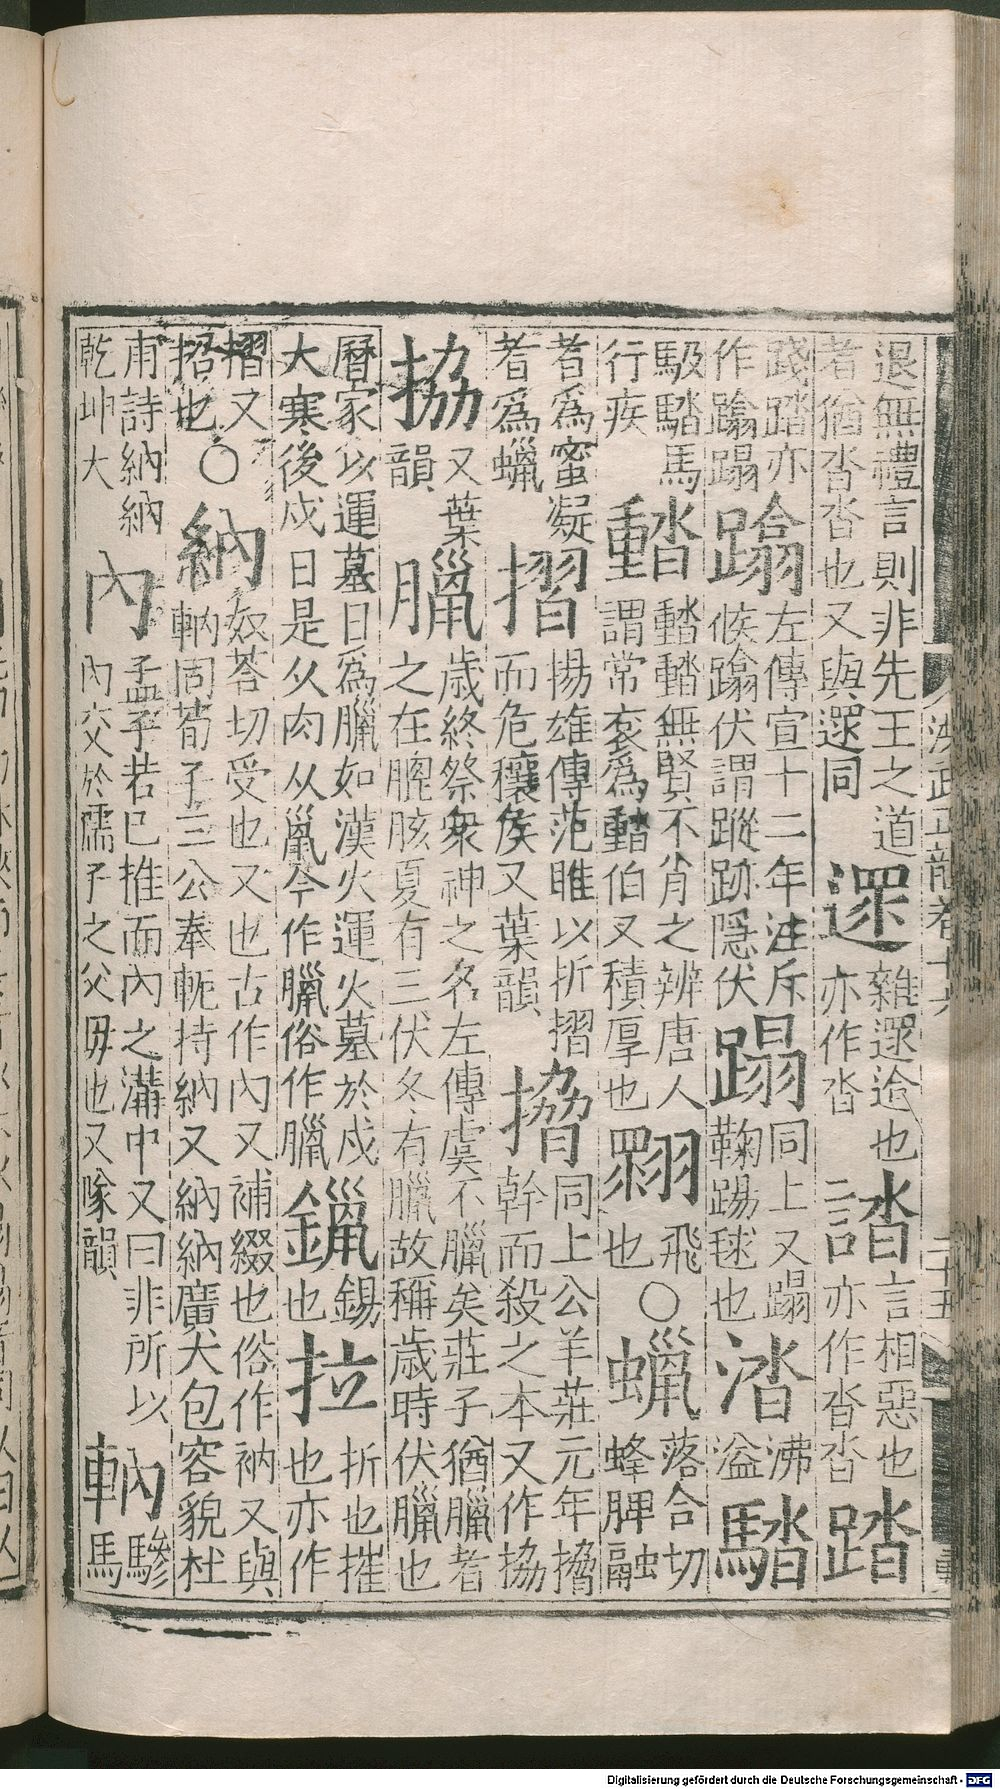 退無禮言則非先王之道
者猶沓沓也又與遝同
遝
雜遝迨也
亦作沓
誻
言相惡也
亦作沓沓
踏
踐踏亦
作蹹蹋
蹹
左傳宣十二年注斥
候蹹伏謂蹤跡隱伏
蹋
同上又蹋
鞠踢毬也
涾
沸
溢
䮚
馺䮚馬
行疾
䵬
䵬䵬無賢不肖之辨唐人
謂常衮爲䵬伯又積厚也
𦑇
飛
也
○
蠟
落合切
蜂脾融
者爲蜜凝
者爲蠟
摺
揚雄傳范雎以折摺
而危穰侯又葉韻
搚
同上公羊莊元年搚
幹而殺之本又作協
拹
又葉
韻
臘
歲終祭衆神之名左傳虞不臘矣莊子猶臘者
之在膍胲夏有三伏冬有臘故稱歲時伏臘也
曆家以運墓日爲臘如漢火運火墓於戌
大寒後戌日是从肉从巤今作臘俗作臈
鑞
錫
也
拉
折也摧
也亦作
摺又
招也
○
納
奴荅切受也又也古作內又補綴也俗作衲又與
軜同荀子三公奉軶持納又納納廣大包容貌杜
甫詩納納
乾坤大
內
孟子若已推而內之溝中又曰非所以
內交於孺子之父毋也又隊韻
軜
驂
馬
洪武正韻卷十六
二十五
Digitalisierung gefördert durch die Deutsche Forschungsgemeinschaft - DFG